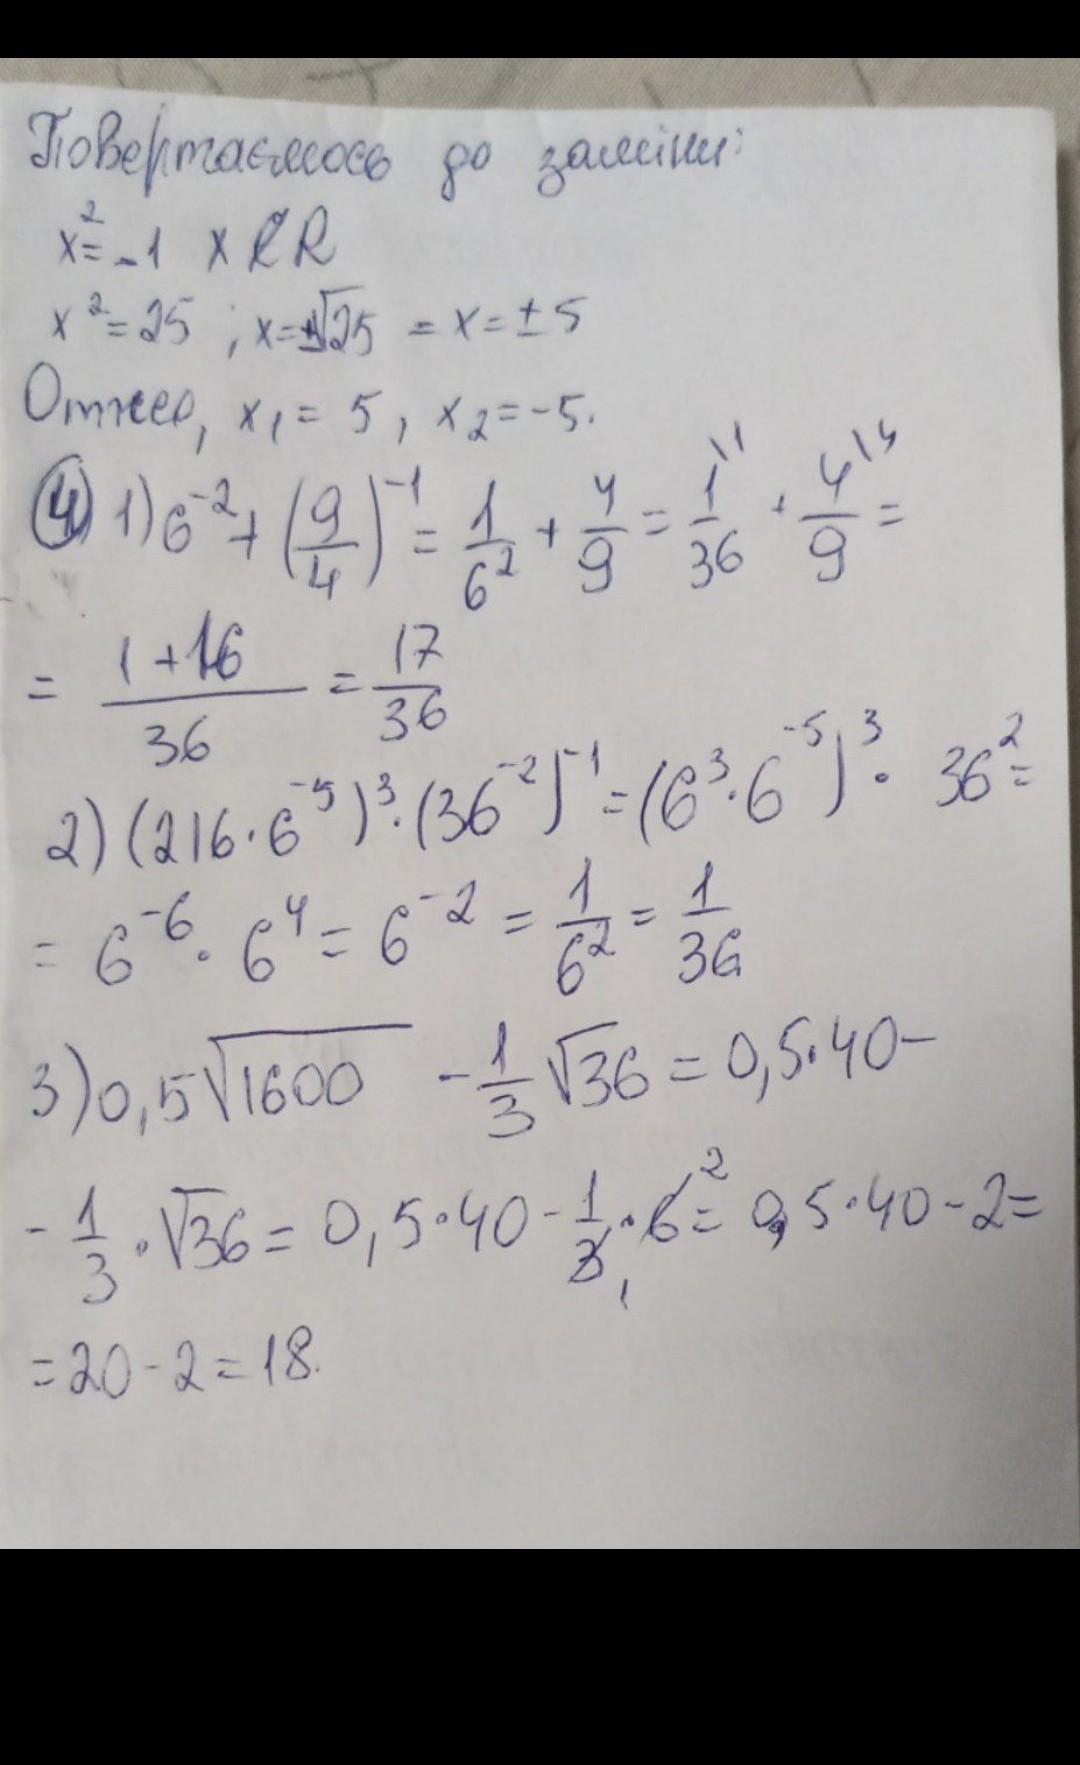 Повертаємось до заміни:
x² = -1 x ∉ R
x² = 25 ; x = ±√25 = x = ±5
Отже, x₁ = 5 , x₂ = -5.
④ 1) 6⁻² + (9/4)⁻¹ = 1/6² + 4/9 = 1/36 \1 + 4/9 \4 =
= (1+16)/36 = 17/36
2) (216 · 6⁻⁵)³ · (36⁻²)⁻¹ = (6³ · 6⁻⁵)³ · 36² =
= 6⁻⁶ · 6⁴ = 6⁻² = 1/6² = 1/36
3) 0,5√1600 - 1/3 √36 = 0,5 · 40 -
- 1/3 · √36 = 0,5 · 40 - 1/3 1 · 6 2 = 0,5 · 40 - 2 =
= 20 - 2 = 18.